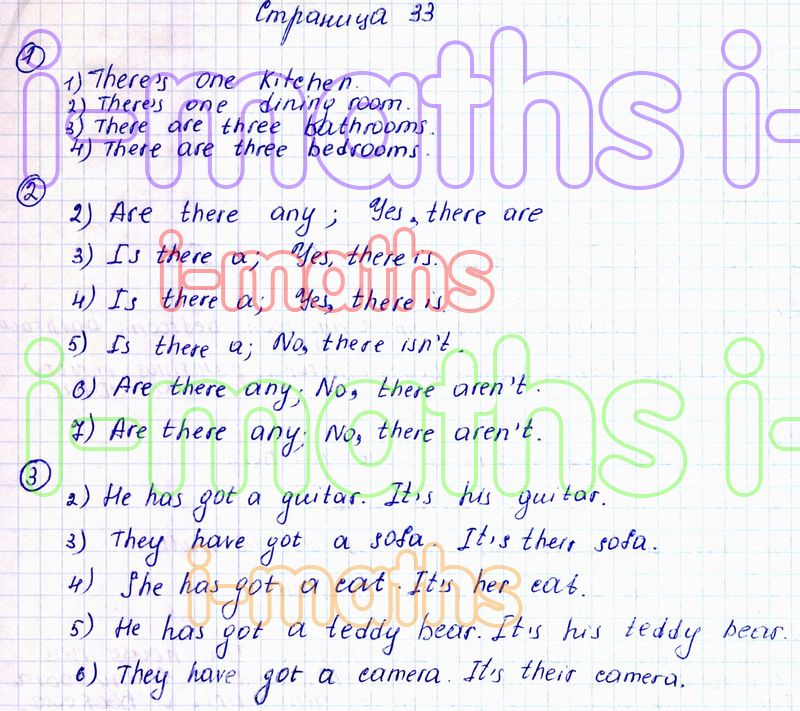 Страница 33
1
1) There's one kitchen.
2) There's one dining room.
3) There are three bathrooms.
4) There are three bedrooms.
2
2) Are there any; Yes, there are
3) Is there a; Yes, there is.
4) Is there a; Yes, there is.
5) Is there a; No, there isn't.
6) Are there any; No, there aren't.
7) Are there any; No, there aren't.
3
2) He has got a guitar. It's his guitar.
3) They have got a sofa. It's their sofa.
4) She has got a cat. It's her cat.
5) He has got a teddy bear. It's his teddy bear.
6) They have got a camera. It's their camera.
i-maths i-
i-maths
i-maths i-
i-maths